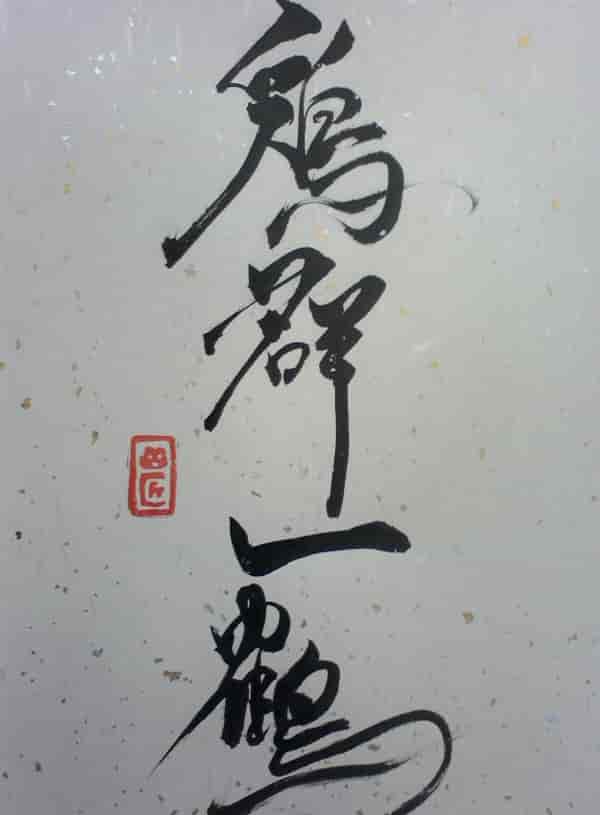 鶏群一鶴